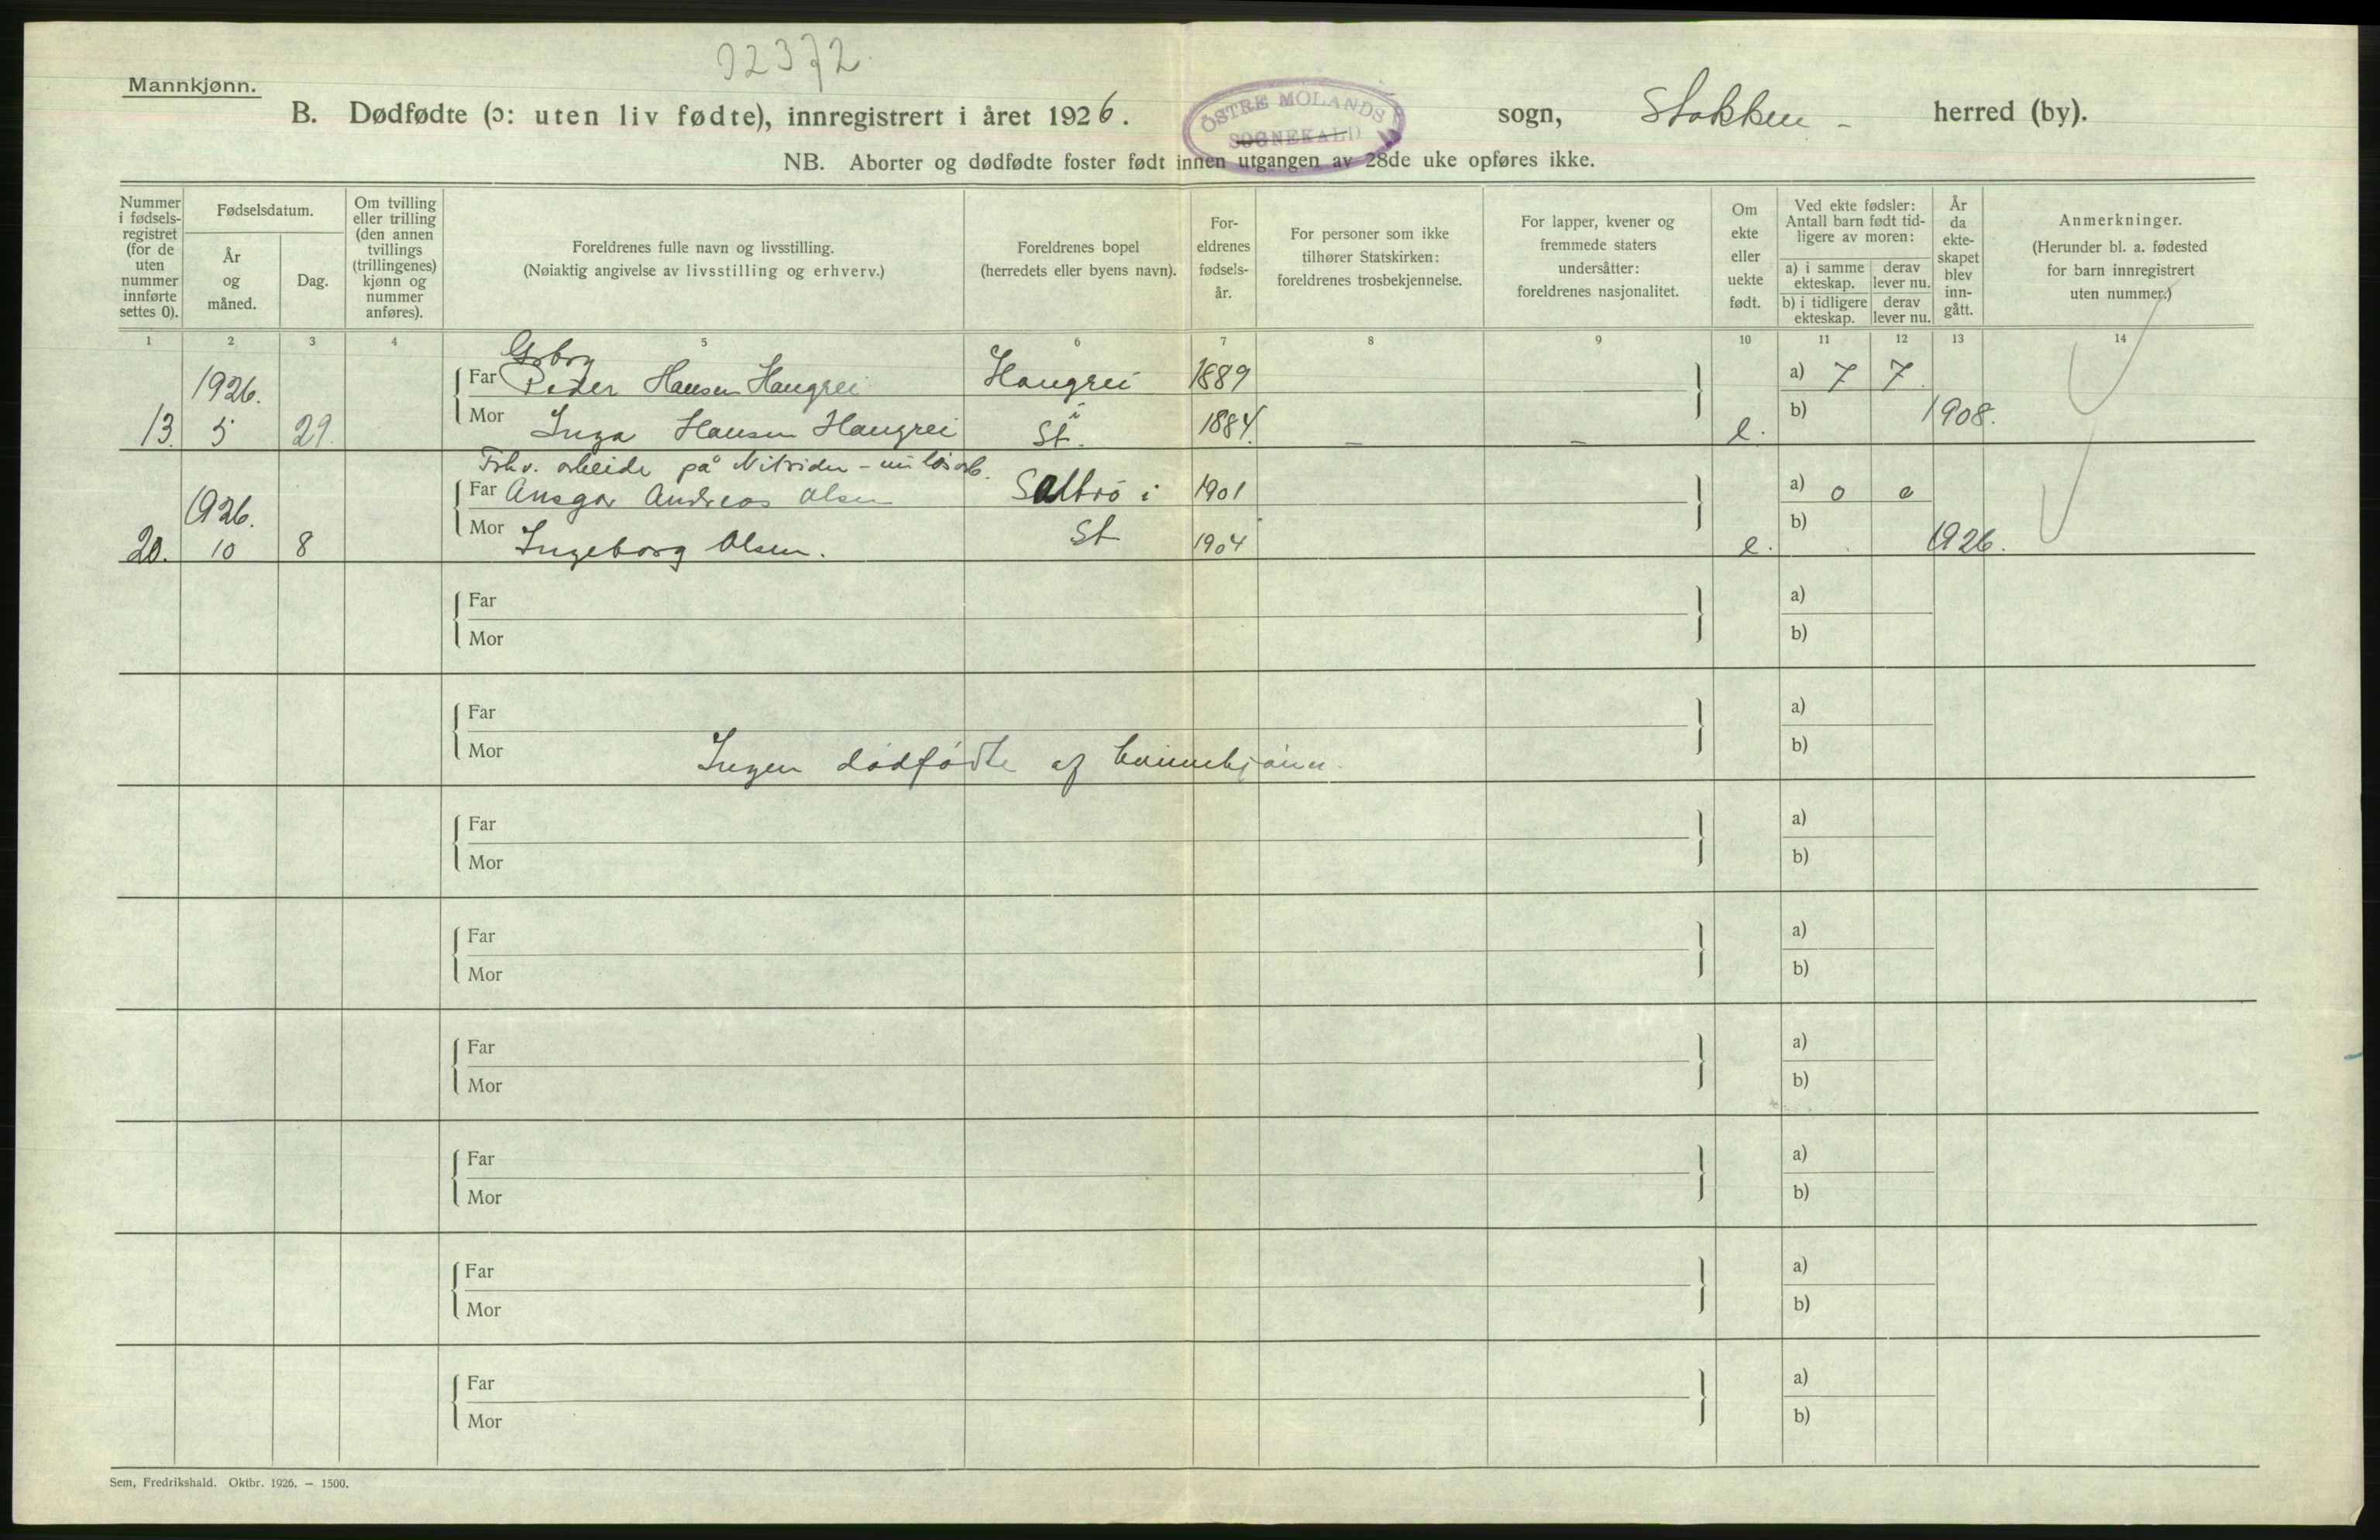 92372.
Mannkjønn.
B. Dødfødte (ɔ: uten liv fødte), innregistrert i året 1926. ÖSTRE MOLANDS SOGNEKALD sogn, Stokken - herred (by).
NB. Aborter og dødfødte foster født innen utgangen av 28de uke opføres ikke.
Nummer i fødselsregistret (for de uten nummer innførte settes 0).
Fødselsdatum.
År og måned.
Dag.
Om tvilling eller trilling (den annen tvillings (trillingenes) kjønn og nummer anføres).
Foreldrenes fulle navn og livsstilling.
(Nøiaktig angivelse av livsstilling og erhverv.)
Foreldrenes bopel
(herredets eller byens navn).
Foreldrenes fødselsår.
For personer som ikke tilhører Statskirken: foreldrenes trosbekjennelse.
For lapper, kvener og fremmede staters undersåtter: foreldrenes nasjonalitet.
Om ekte eller uekte født.
Ved ekte fødsler: Antall barn født tidligere av moren:
a) i samme ekteskap. derav lever nu.
b) i tidligere ekteskap. derav lever nu.
År da ekteskapet blev inngått.
Anmerkninger.
(Herunder bl. a. fødested for barn innregistrert uten nummer.)
1 2 3 4 5 6 7 8 9 10 11 12 13 14
Grbrg
1926. Far Peder Hansen Haugrei Haugrei i 1889 a) 7 7
13. 5 29. Mor Inga Hansen Haugrei St. 1884. – – e. b) 1908.
Fhv. arbeide på Nitriden - nu løsarb.
1926. Far Ansgar Andreas Olsen Saltrø i 1901 a) 0 0
20. 10 8 Mor Ingeborg Olsen. St 1904 e. b) 1926.
Far a)
Mor b)
Far a)
Mor b)
Ingen dødfødte af kvinnekjønn.
Far a)
Mor b)
Far a)
Mor b)
Far a)
Mor b)
Far a)
Mor b)
Far a)
Mor b)
Far a)
Mor b)
Sem, Fredrikshald. Oktbr. 1926. — 1500.